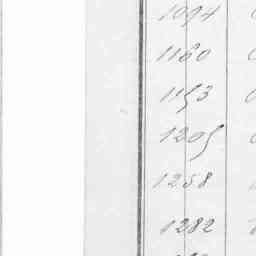 1094
1160
1153
1205
1258
1282